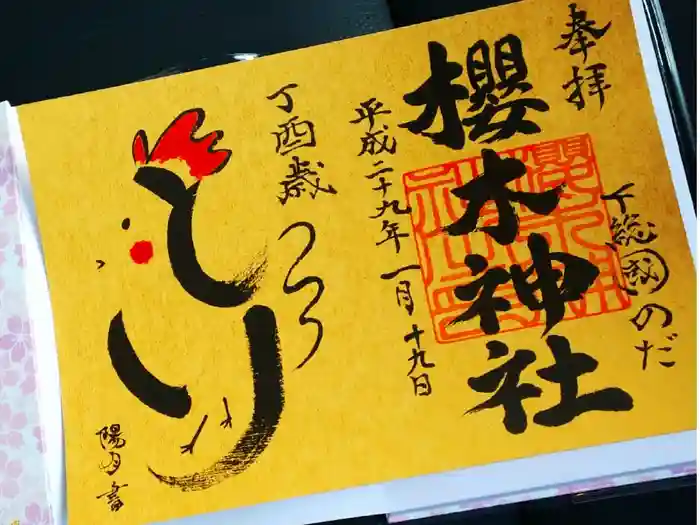 奉拝
下総國のだ
櫻木神社
平成二十九年一月十九日
丁酉歳
とり
陽月書